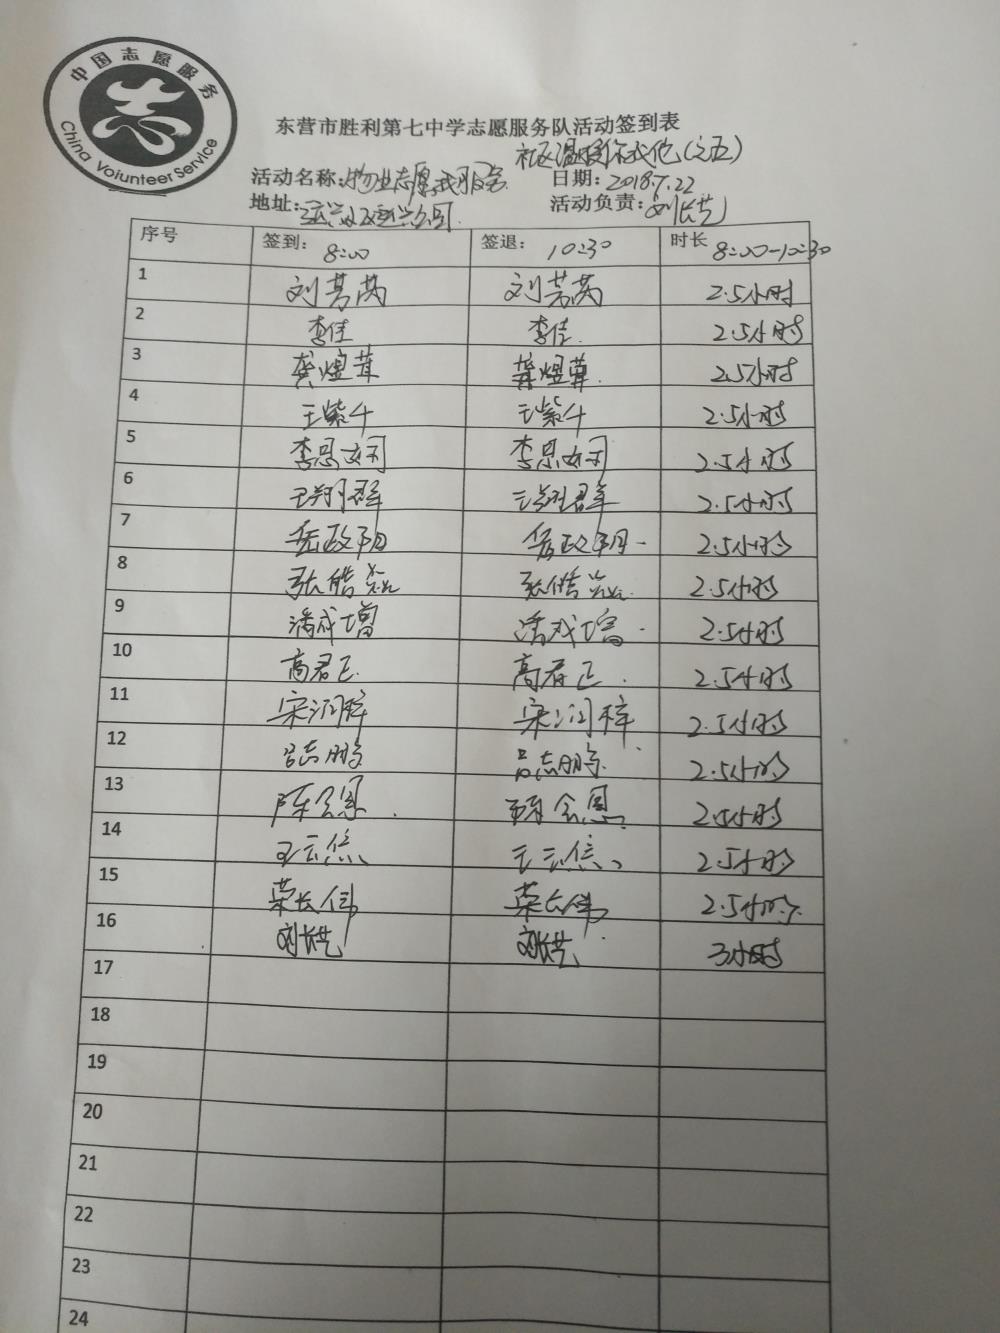 中国志愿服务
China Volunteer Service
东营市胜利第七中学志愿服务队活动签到表
社区温暖你我他(之五)
活动名称:物业志愿我服务 日期:2018.7.22
地址: 活动负责:刘长艺
序号 签到: 8:00 签退: 10:30 时长 8:00-10:30
1 刘芳芮 刘芳芮 2.5小时
2 李佳 李佳 2.5小时
3 龚煜茸 龚煜茸 2.5小时
4 王紫千 王紫千 2.5小时
5 李思妤 李思妤 2.5小时
6 王翔群 王翔群 2.5小时
7 岳政明 岳政明 2.5小时
8 张皓 张皓 2.5小时
9 潘成增 潘成增 2.5小时
10 高君正 高君正 2.5小时
11 宋润梓 宋润梓 2.5小时
12 吕志鹏 吕志鹏 2.5小时
13 陈会恩 陈会恩 2.5小时
14 王云 王云 2.5小时
15 荣长伟 荣长伟 2.5小时
16 刘长艺 刘长艺 3小时
17
18
19
20
21
22
23
24